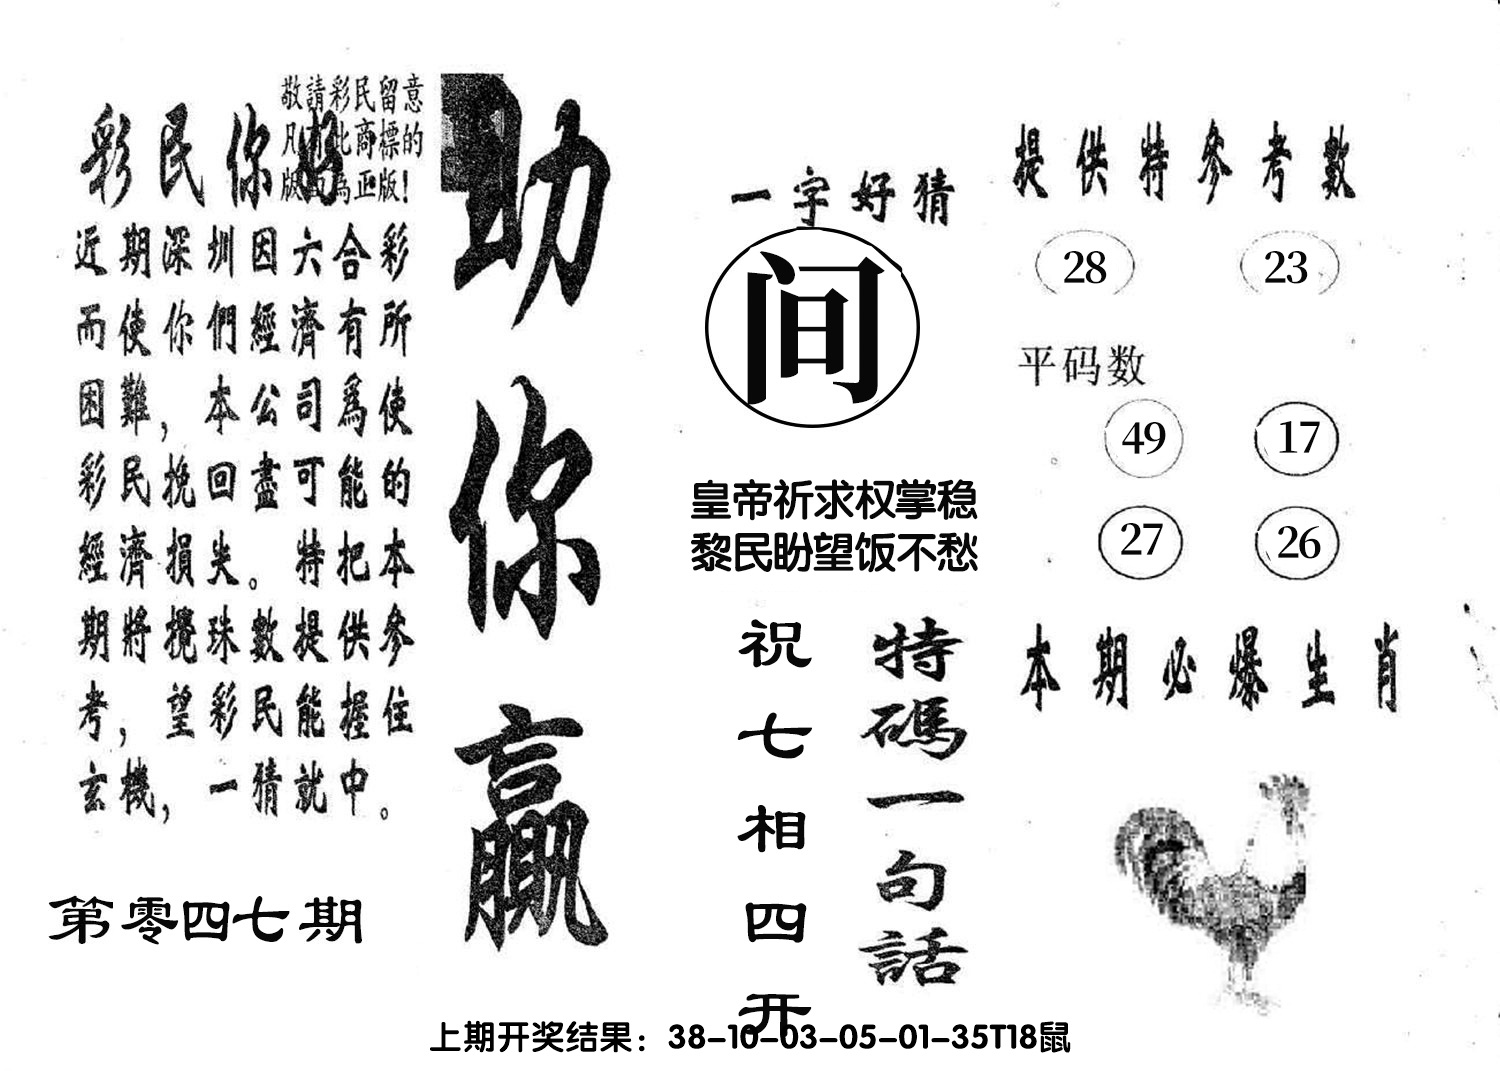 敬請彩民留意
凡有此商標的
版面為正版！
彩民你好
近期深圳因六合彩
而使你們經濟有所
困難，本公司爲使
彩民挽回盡可能的
經濟損失。特把本
期將攪珠數提供參
考，望彩民能握住
玄機，一猜就中。
第零四七期
助你贏
一字好猜
间
皇帝祈求权掌稳
黎民盼望饭不愁
特碼一句話
祝七相四开
提供特參考數
28 23
平码数
49 17
27 26
本期必爆生肖
上期开奖结果：38-10-03-05-01-35T18鼠